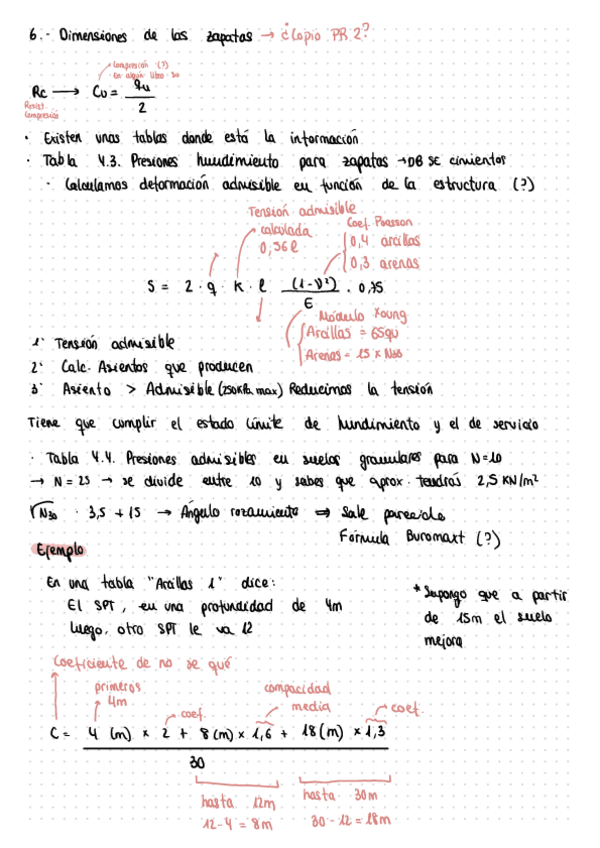 6.- Dimensiones de las zapatas → ¿Copio PR 2?
Compresión (?)
En algún libro su
Rc → Cu = qu / 2
Resist.
Compresión
· Existen unas tablas donde está la información
· Tabla 4.3. Presiones hundimiento para zapatas → DB SE cimientos
· Calculamos deformación admisible en función de la estructura (?)
Tensión admisible
calculada
0,56l
Coef. Poesson
0,4 arcillas
0,3 arenas
S = 2 · q · k · l (1-ν²) / E · 0,75
Módulo Young
Arcillas = 65qu
Arenas = 15 x N30
1· Tensión admisible
2· Calc. Asientos que producen
3· Asiento > Admisible (250KPa max) Reducimos la tensión
Tiene que cumplir el estado límite de hundimiento y el de servicio
· Tabla 4.4. Presiones admisibles en suelos granulares para N=10
→ N = 25 → se divide entre 10 y sabes que aprox. tendrás 2,5 KN/m²
√N30 · 3,5 + 15 → Ángulo rozamiento ⇒ Sale parecido
Fórmula Buromaxt (?)
Ejemplo
En una tabla "Arcillas 1" dice:
El SPT, en una profundidad de 4m
luego, otro SPT le va 12
* Supongo que a partir
de 15m el suelo
mejora
Coeficiente de no se qué
primeros
4m
coef.
compacidad
media
coef.
C = 4 (m) x 2 + 8 (m) x 1,6 + 18 (m) x 1,3
30
hasta 12m
12-4 = 8m
hasta 30m
30-12 = 18m